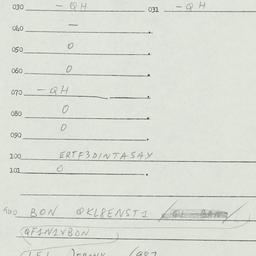 030 - QH 031 - QH
040 -
050 0
060 0
070 - QH
080 0
090 0
100 ERTF3DINTASAY
101 0
BON QKL8ENST1
QF1N1VBON
1987